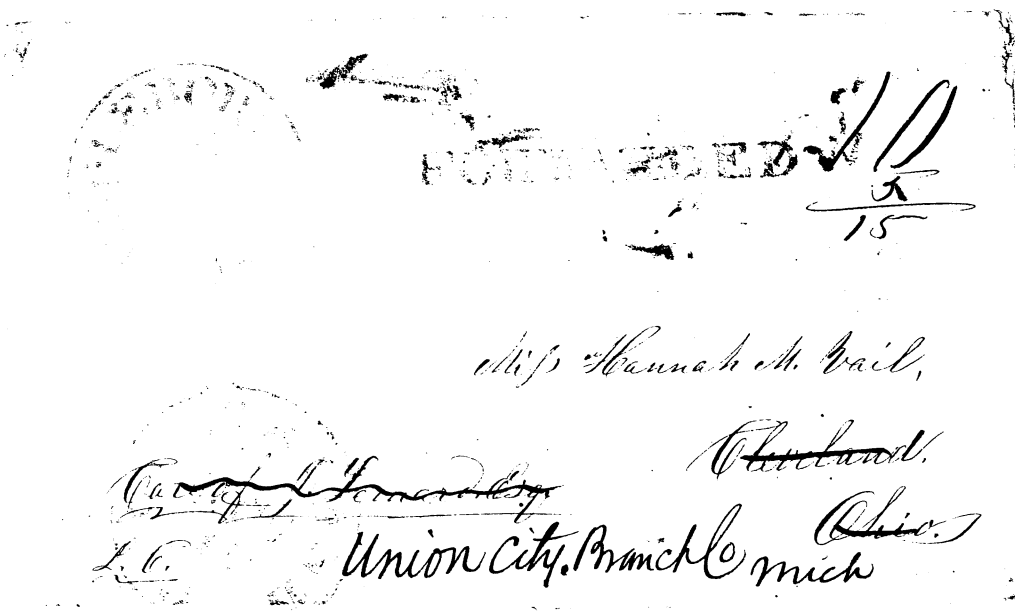 FORWARDED
10
5
15
Miss Hannah M. Vail,
Cleveland.
Care of J. Esqr
Ohio.
Union City. Branch Co mich